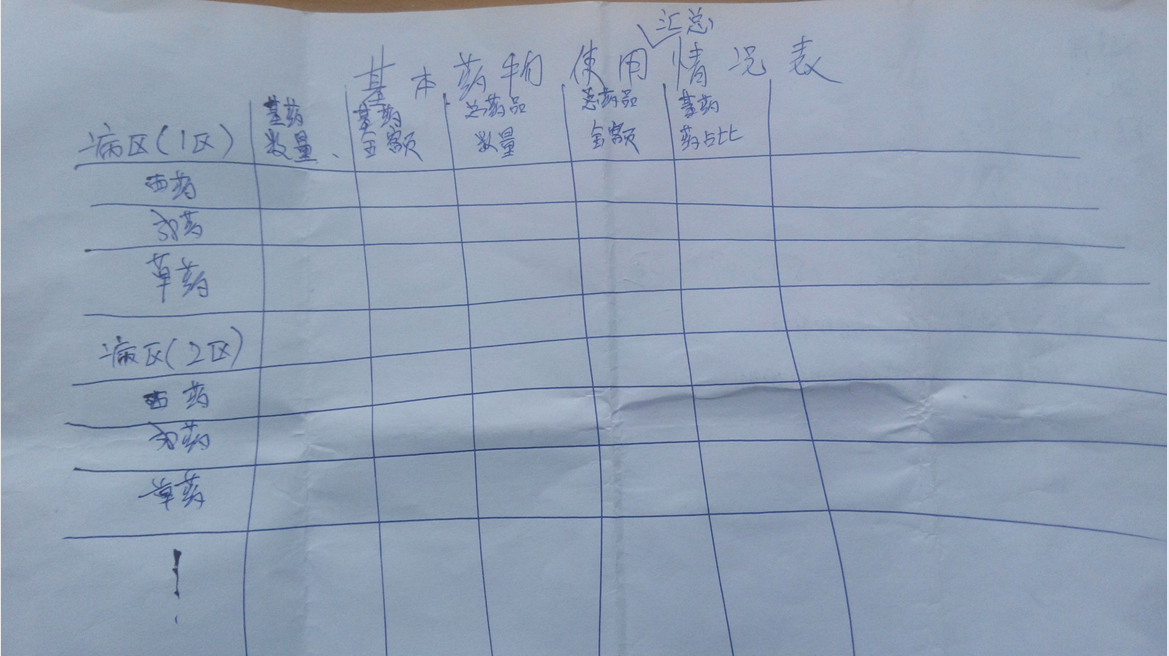 汇总
基本药物使用情况表
病区(1区) 基药数量、 基药金额 总药品数量 总药品金额 基药药占比
西药
成药
草药
病区(2区)
西药
成药
草药